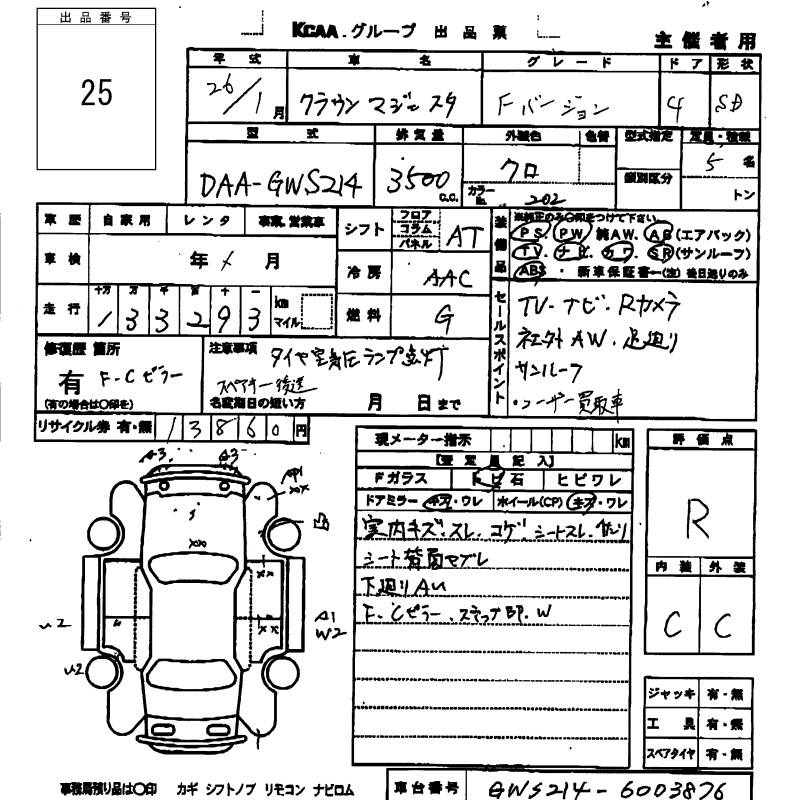 出品番号
25
KCAA.グループ 出品票
主催者用
年式 車名 グレード ドア 形状
26/1月 クラウン マジェスタ Fバージョン 4 SD
型式 排気量 外装色 色替 型式指定 定員・積載
DAA-GWS214 3500 C.C. クロ 5名
カラーNo. 202 類別区分 トン
車歴 自家用 レンタ 事業, 営業車
シフト フロア コラム パネル AT
装備品
※純正のみ○印をつけて下さい
PS. PW. 純AW. AB(エアバック)
TV. ナビ. カワ. SR(サンルーフ)
ABS ・ 新車保証書←(注) 後日送りのみ
車検 年 月
冷房 AAC
走行 十万 万 千 百 十 一
133293 km マイル
燃料 G
セールスポイント
TV・ナビ・Rカメラ
社外AW.足廻り
サンルーフ
・ユーザー買取車
修復歴 箇所
有 F-Cピラー
(有の場合は○印を)
注意事項 タイヤ空気圧ランプ点灯
スペアキー後送
名変期日の短い方 月 日まで
リサイクル券 有・無 13860円
現メーター指示 km
【査定員記入】
Fガラス トビ石 ヒビワレ
ドアミラー キズ・ワレ ホイール(CP) キズ・ワレ
室内キズ.スレ.コゲ.シートスレ.
シート背面ヤブレ
下廻りAU
F-Cピラー.ステップ部.W
評価点
R
内装 外装
C C
A3 A3
AP1
XX
XX
XX
XX
A1
W2
U2
U2
ジャッキ 有・無
工具 有・無
スペアタイヤ 有・無
事務局預り品は○印 カギ シフトノブ リモコン ナビロム
車台番号 GWS214-6003876